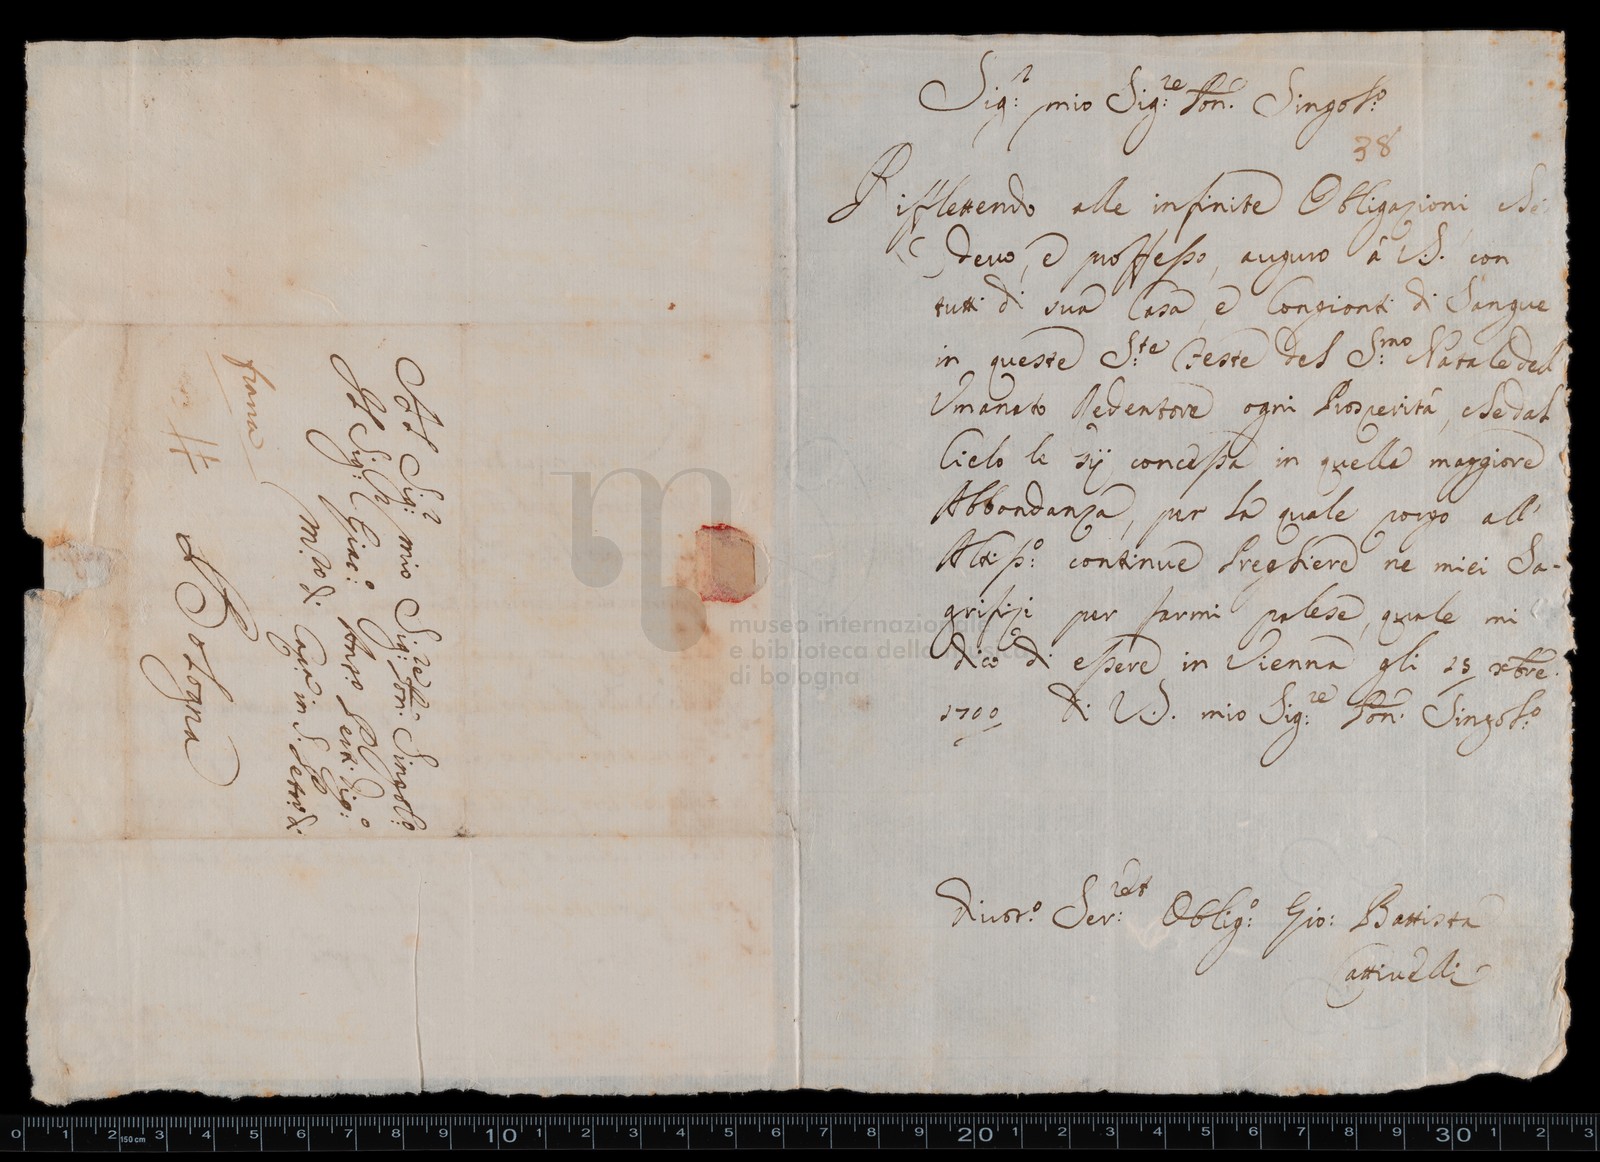 Sig:r mio Sig:re Pron: Singol:o
38
Rifflettendo alle infinite Obligazioni, che
devo, e proffesso, auguro à V.S. con
tutti di sua Casa, e Congionti di Sangue
in queste S:te Feste del S:mo Natale del
Vmanato Redentore ogni Prosperità, che dal
Cielo le sij concessa in quella maggiore
Abbondanza, per la quale porgo all'
Altiss:o continue Preghiere ne miei Sa-
grifizj per farmi palese, quale mi
dico di essere in Vienna gli 25 xbre
1700 Di V.S. mio Sig:re Pron: Singol:o
Diuot:o Ser:re Oblig:o Gio: Battista
Cattiuelli
All Sig:r mio Sig:re Pron: Singol:o
Il Sig: Giac:o Ant:o Perti Dig:o
M:ro di Cap:a in S. Petro di
Bologna
franca
museo internazionale
e biblioteca della musica
di bologna